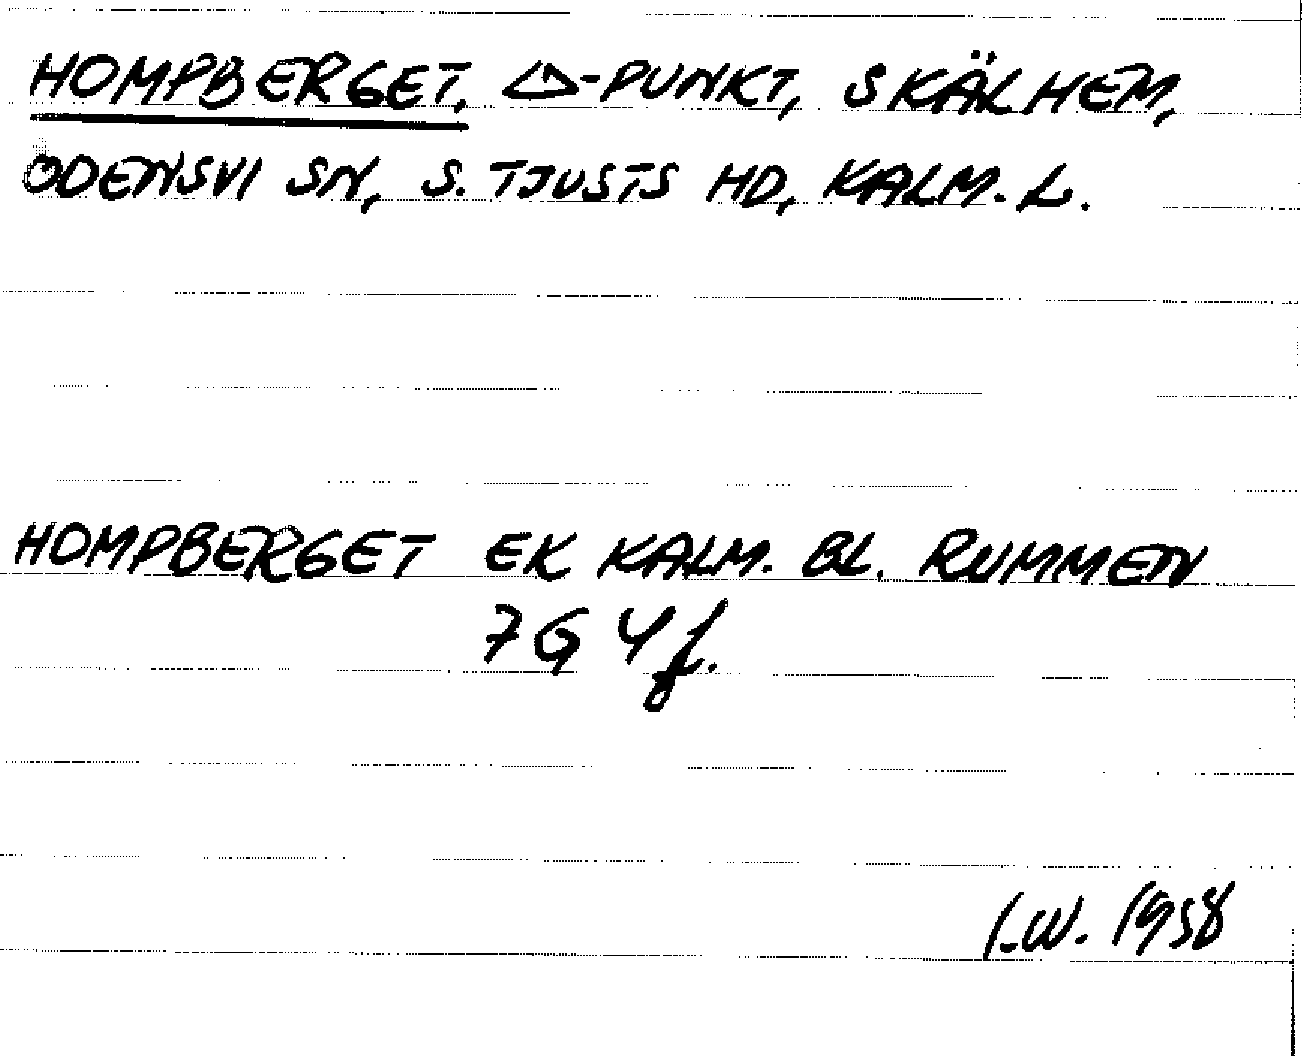 HOMPBERGET, △-PUNKT, SKÄLHEM,
ODENSVI SN, S. TJUSTS HD, KALM. L.
HOMPBERGET EK KALM. BL. RUMMEN
7G 4f.
I.W. 1958